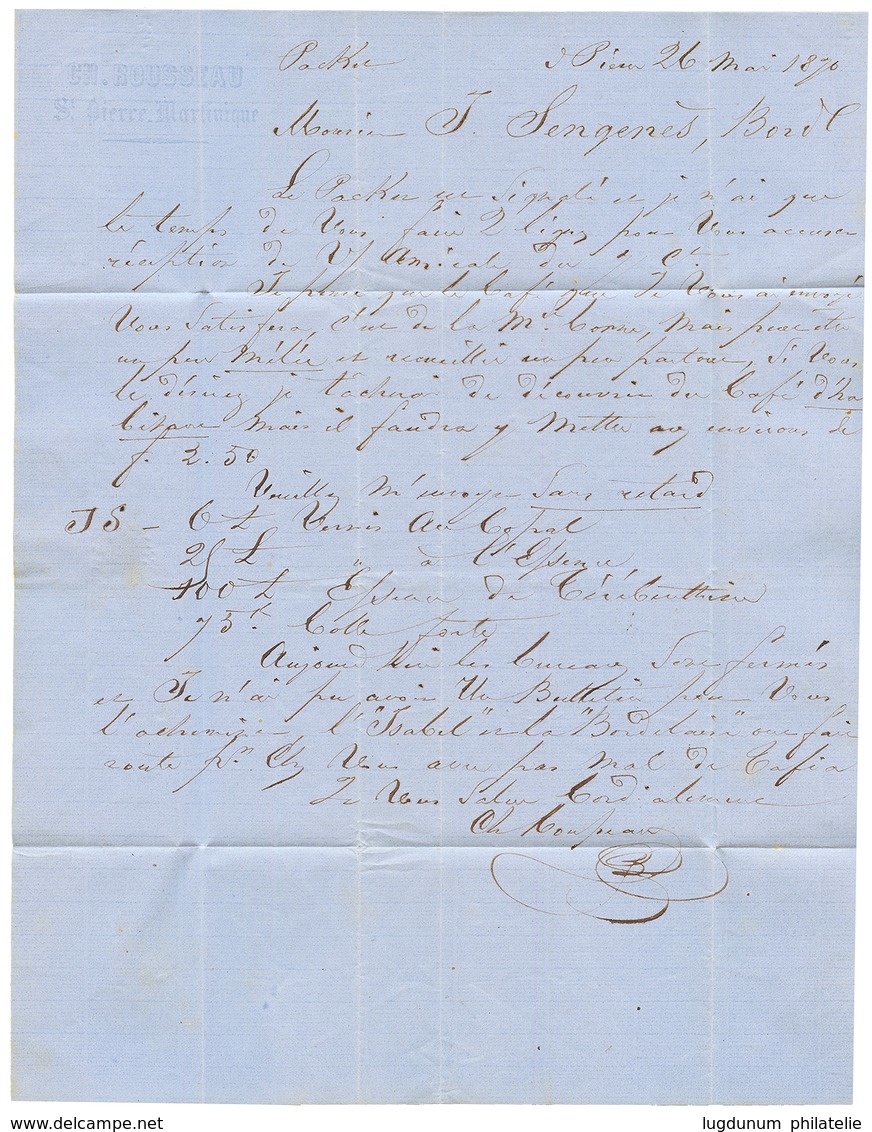 CH. ROUSSEAU
St Pierre. Martinique
Packet St Pierre 26 Mai 1870
Monsieur J. Sengenès, Bord.
Le Packet est signalé et je n'ai que
le temps de Vous faire 2 lignes pour Vous accuser
réception de V/ Amicale du Ct.
Je pense que le Café que Je Vous ai envoyé
Vous Satisfera, c'est de la Mse bonne, mais peut être
un peu mêlée et recueillie un peu partout, Si Vous
le désirez je tâcherai de découvrir du Café d'ha
bitant mais il faudra y mettre aux environs de
f. 2.50
Veuillez m'envoyer Sans retard
JS - 6 L Vernis au Copal
25 L " à l'Essence
100 L Essence de Térébenthine
75 k. Colle forte
Aujourd'hui les bureaux Sont fermés
et Je n'ai pu avoir Un Bulletin pour Vous
l'acheminer, l'"Isabel" et la "Bordelaise" ont fait
route pr. Chez Vous avec pas mal de Tafia
Je Vous Salue Cordialement
Ch Rousseau
lugdunum philatelie
delcampe.net